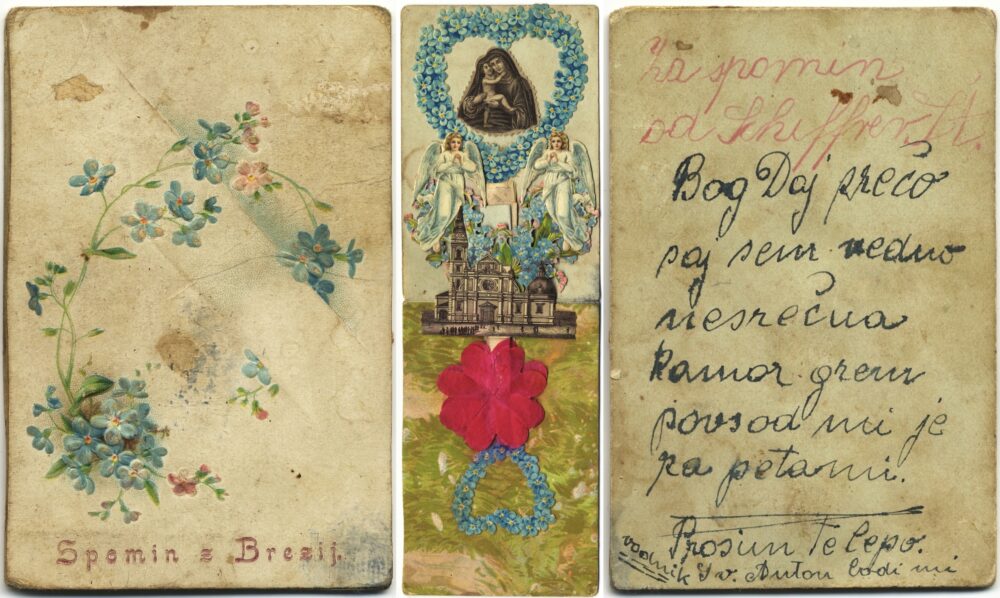 Spomin z Brezij.
Za spomin
od Schiffrer St.
Bog Daj srečo
saj sem vedno
nesrečna
Kamor grem
povsod mi je
za petami.
Prosim Te lepo.
Sv. Anton bodi mi
vodnik